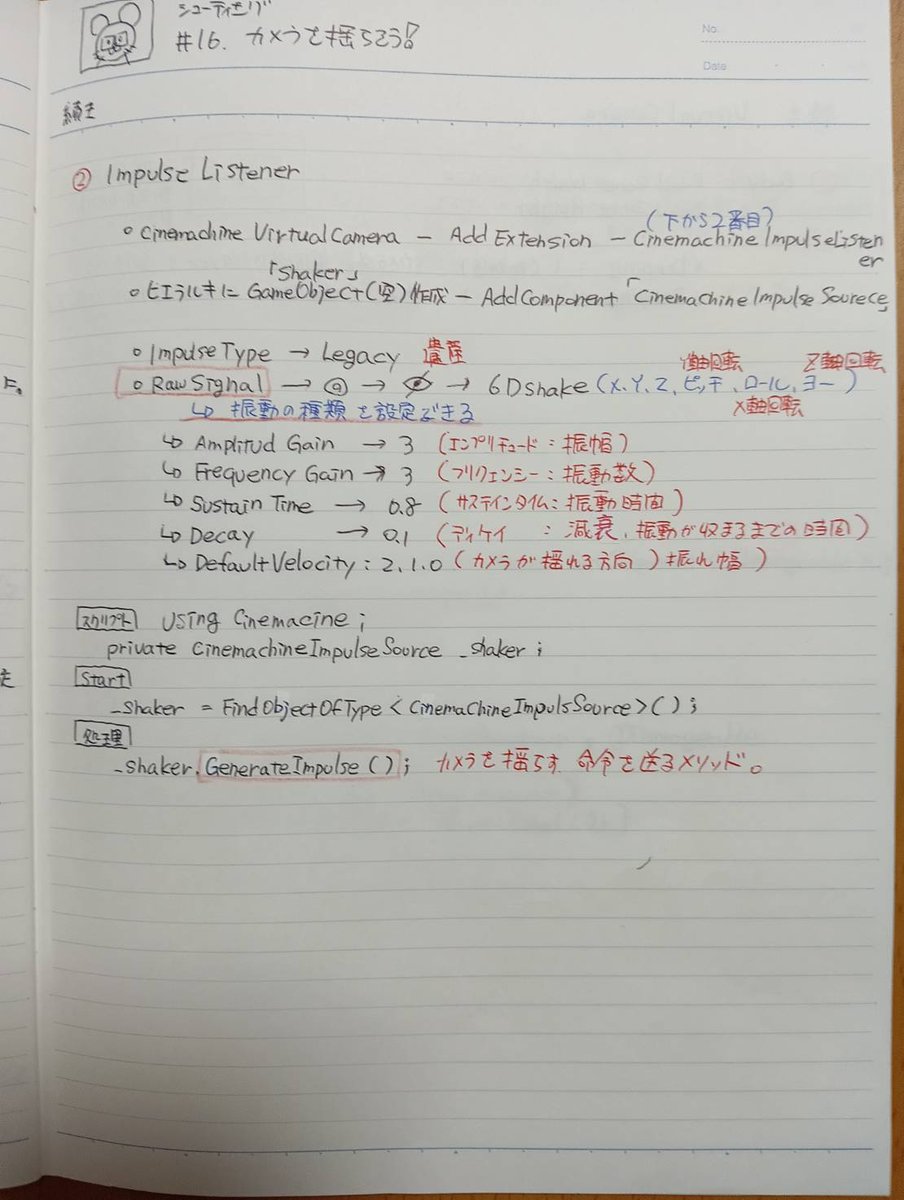 シューティング
#16. カメラを揺らそう!
No.
Date
続き
② Impulse Listener
(下から2番目)
○ Cinemachine VirtualCamera ー Add Extension ー Cinemachine Impulse Listen
er
「Shaker」
○ ヒエラルキーに GameObject(空)作成 ー Add Component 「Cinemachine Impulse Sourece」
○ Impulse Type → Legacy 遺産
Y軸回転 Z軸回転
○ Raw Signal → ◎ → → 6D shake (X、Y、Z、ピッチ、ロール、ヨー)
X軸回転
↳ 振動の種類を設定できる
↳ Amplitud Gain → 3 (エンプリチュード:振幅)
↳ Frequency Gain → 3 (フリクェンシー:振動数)
↳ Sustain Time → 0.8 (サステインタイム:振動時間)
↳ Decay → 0.1 (ディケイ :減衰、振動が収まるまでの時間)
↳ Default Velocity : 2.1.0 (カメラが揺れる方向)振れ幅)
スクリプト using Cinemacine ;
private CinemachineImpulseSource _shaker ;
Start
_shaker = FindObjectOfType < CinemachineImpulsSource > ( ) ;
処理
_shaker. GenerateImpulse ( ) ; カメラを揺らす 命令を送るメソッド。